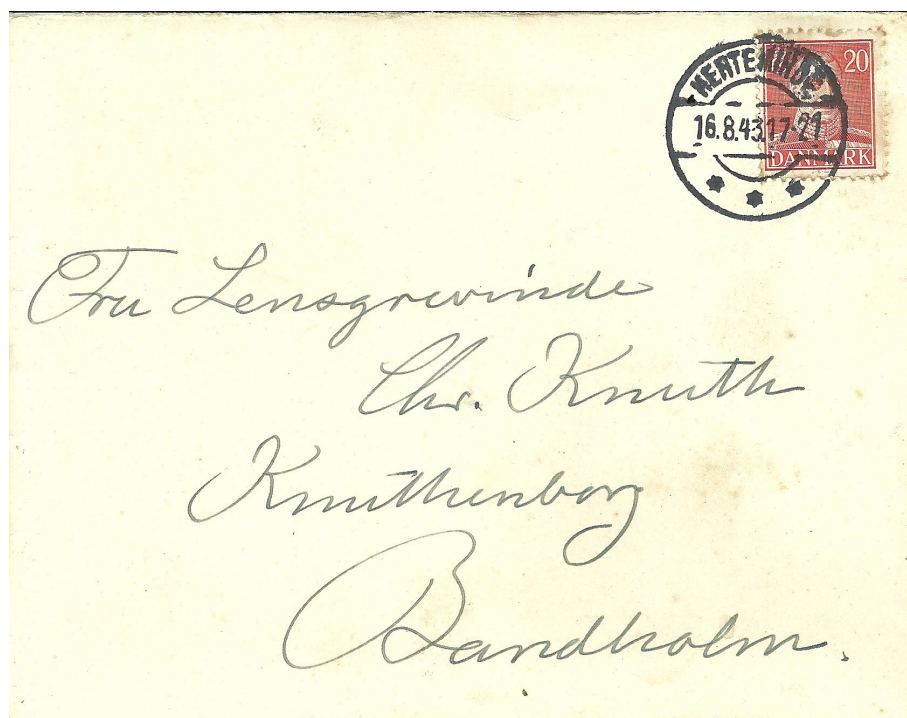 20
KERTEMINDE
16.8.43.17-21
DANMARK
Fru Lensgrevinde
Chr. Knuth
Knuthenborg
Bandholm.